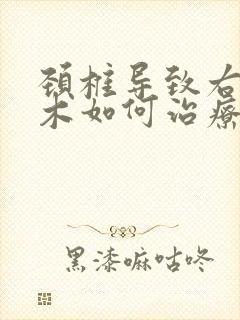 颈椎导致右
木如何治疗
黑漆嘛咕咚